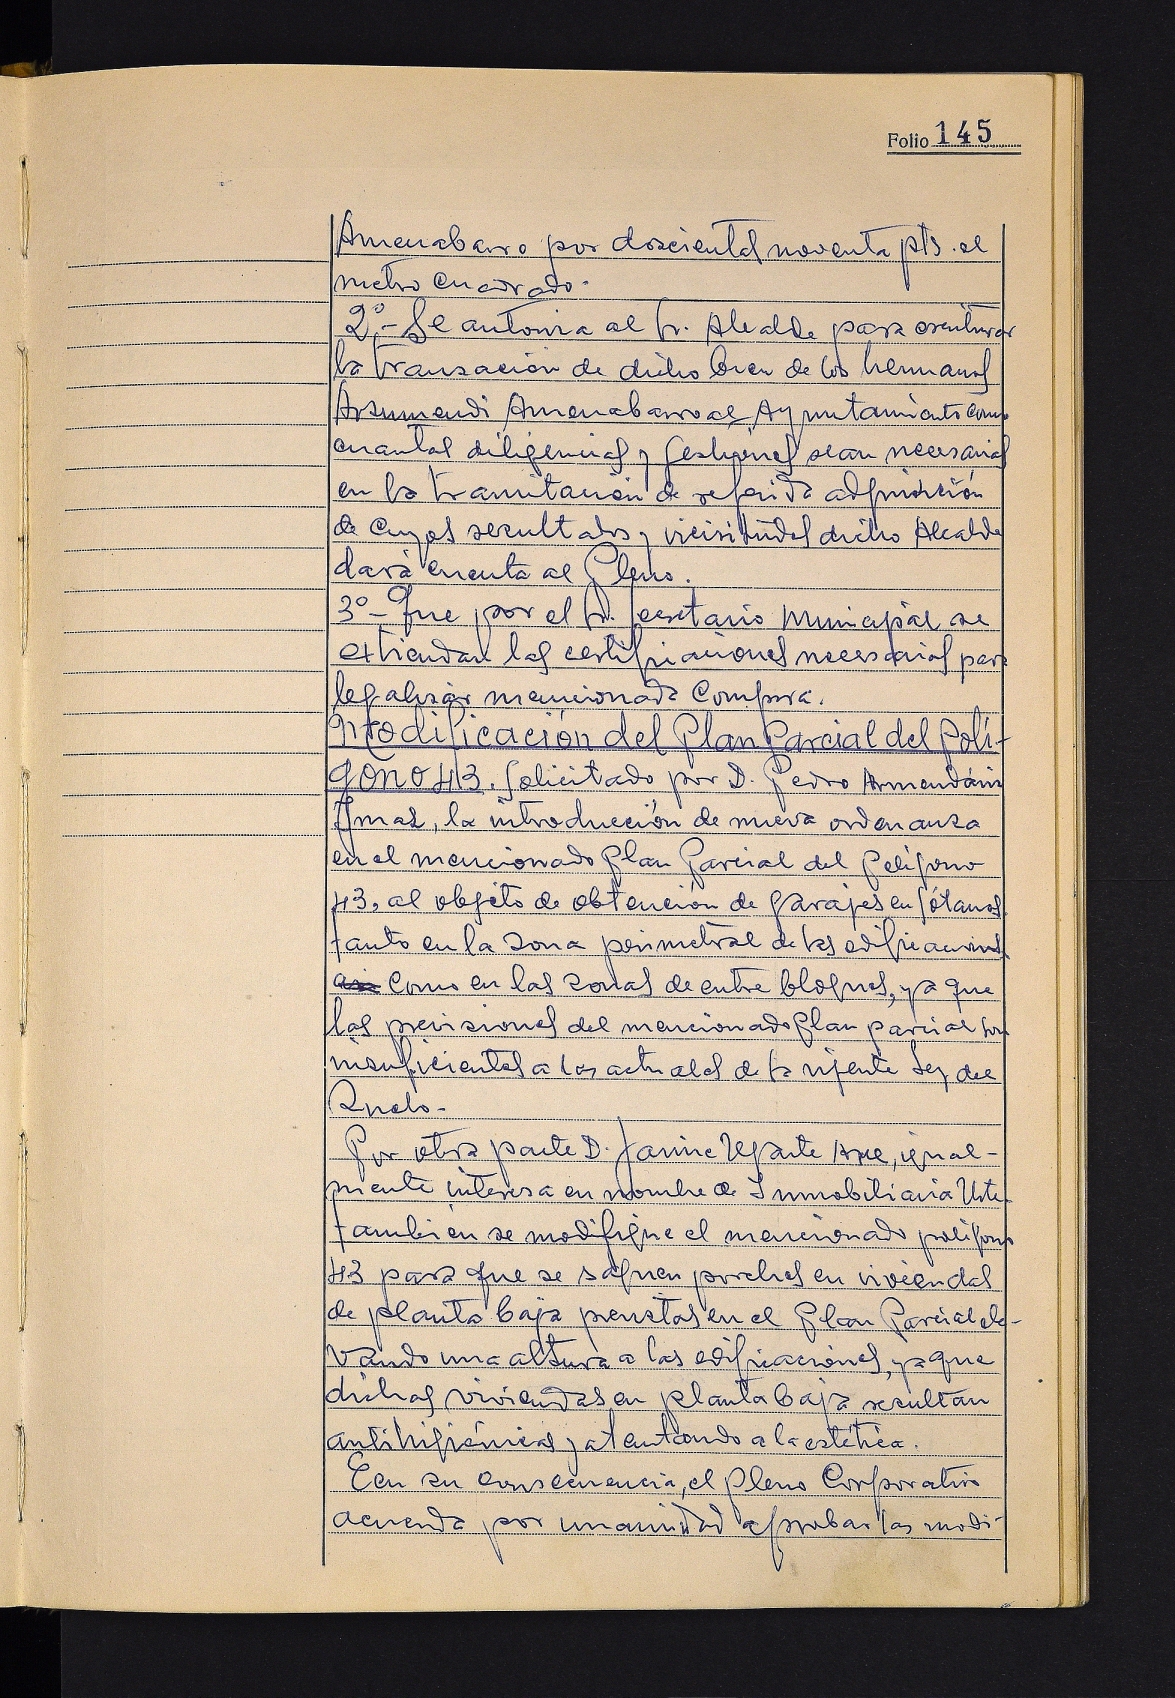 Folio 145
Amenabarro por doscientas noventa pts. el
metro cuadrado.
2º.- Se autoriza al Sr. Alcalde para escriturar
la transacion de dicho bien de los hermanos
Arsumendi Amenabarro al Ayuntamiento como
cuantas diligencias y gestiones sean necesarias
en la tramitación de referida adquisición
de cuyos resultados y vicisitudes dicho Alcalde
dará cuenta al Pleno.
3º- Que por el Sr. Secretario Municipal se
extiendan las certificaciones necesarias para
legalizar mencionada compra.
Modificación del Plan Parcial del Polí-
gono 43. Solicitado por D. Pedro Armendáriz
la introducción de nueva ordenanza
en el mencionado Plan Parcial del Polígono
43, al objeto de obtención de garajes en sótanos
tanto en la zona perimetral de las edificaciones
así como en las zonas de entre bloques, ya que
las previsiones del mencionado Plan parcial son
insuficientes a las actuales de la vijente Ley del
Suelo.-
Por otra parte D. Jaime Ugarte igual-
mente interesa en nombre de Inmobiliaria Urte
tambien se modifique el mencionado polígono
43 para que se saquen porches en viviendas
de planta baja previstas en el Plan Parcial ele-
vando una altura a las edificaciones, ya que
dichas viviendas en planta baja resultan
antihigiénicas y atentando a la estética.
Een su consecuencia, el Pleno Corporativo
acuerda por unanimidad aprobar las modi-